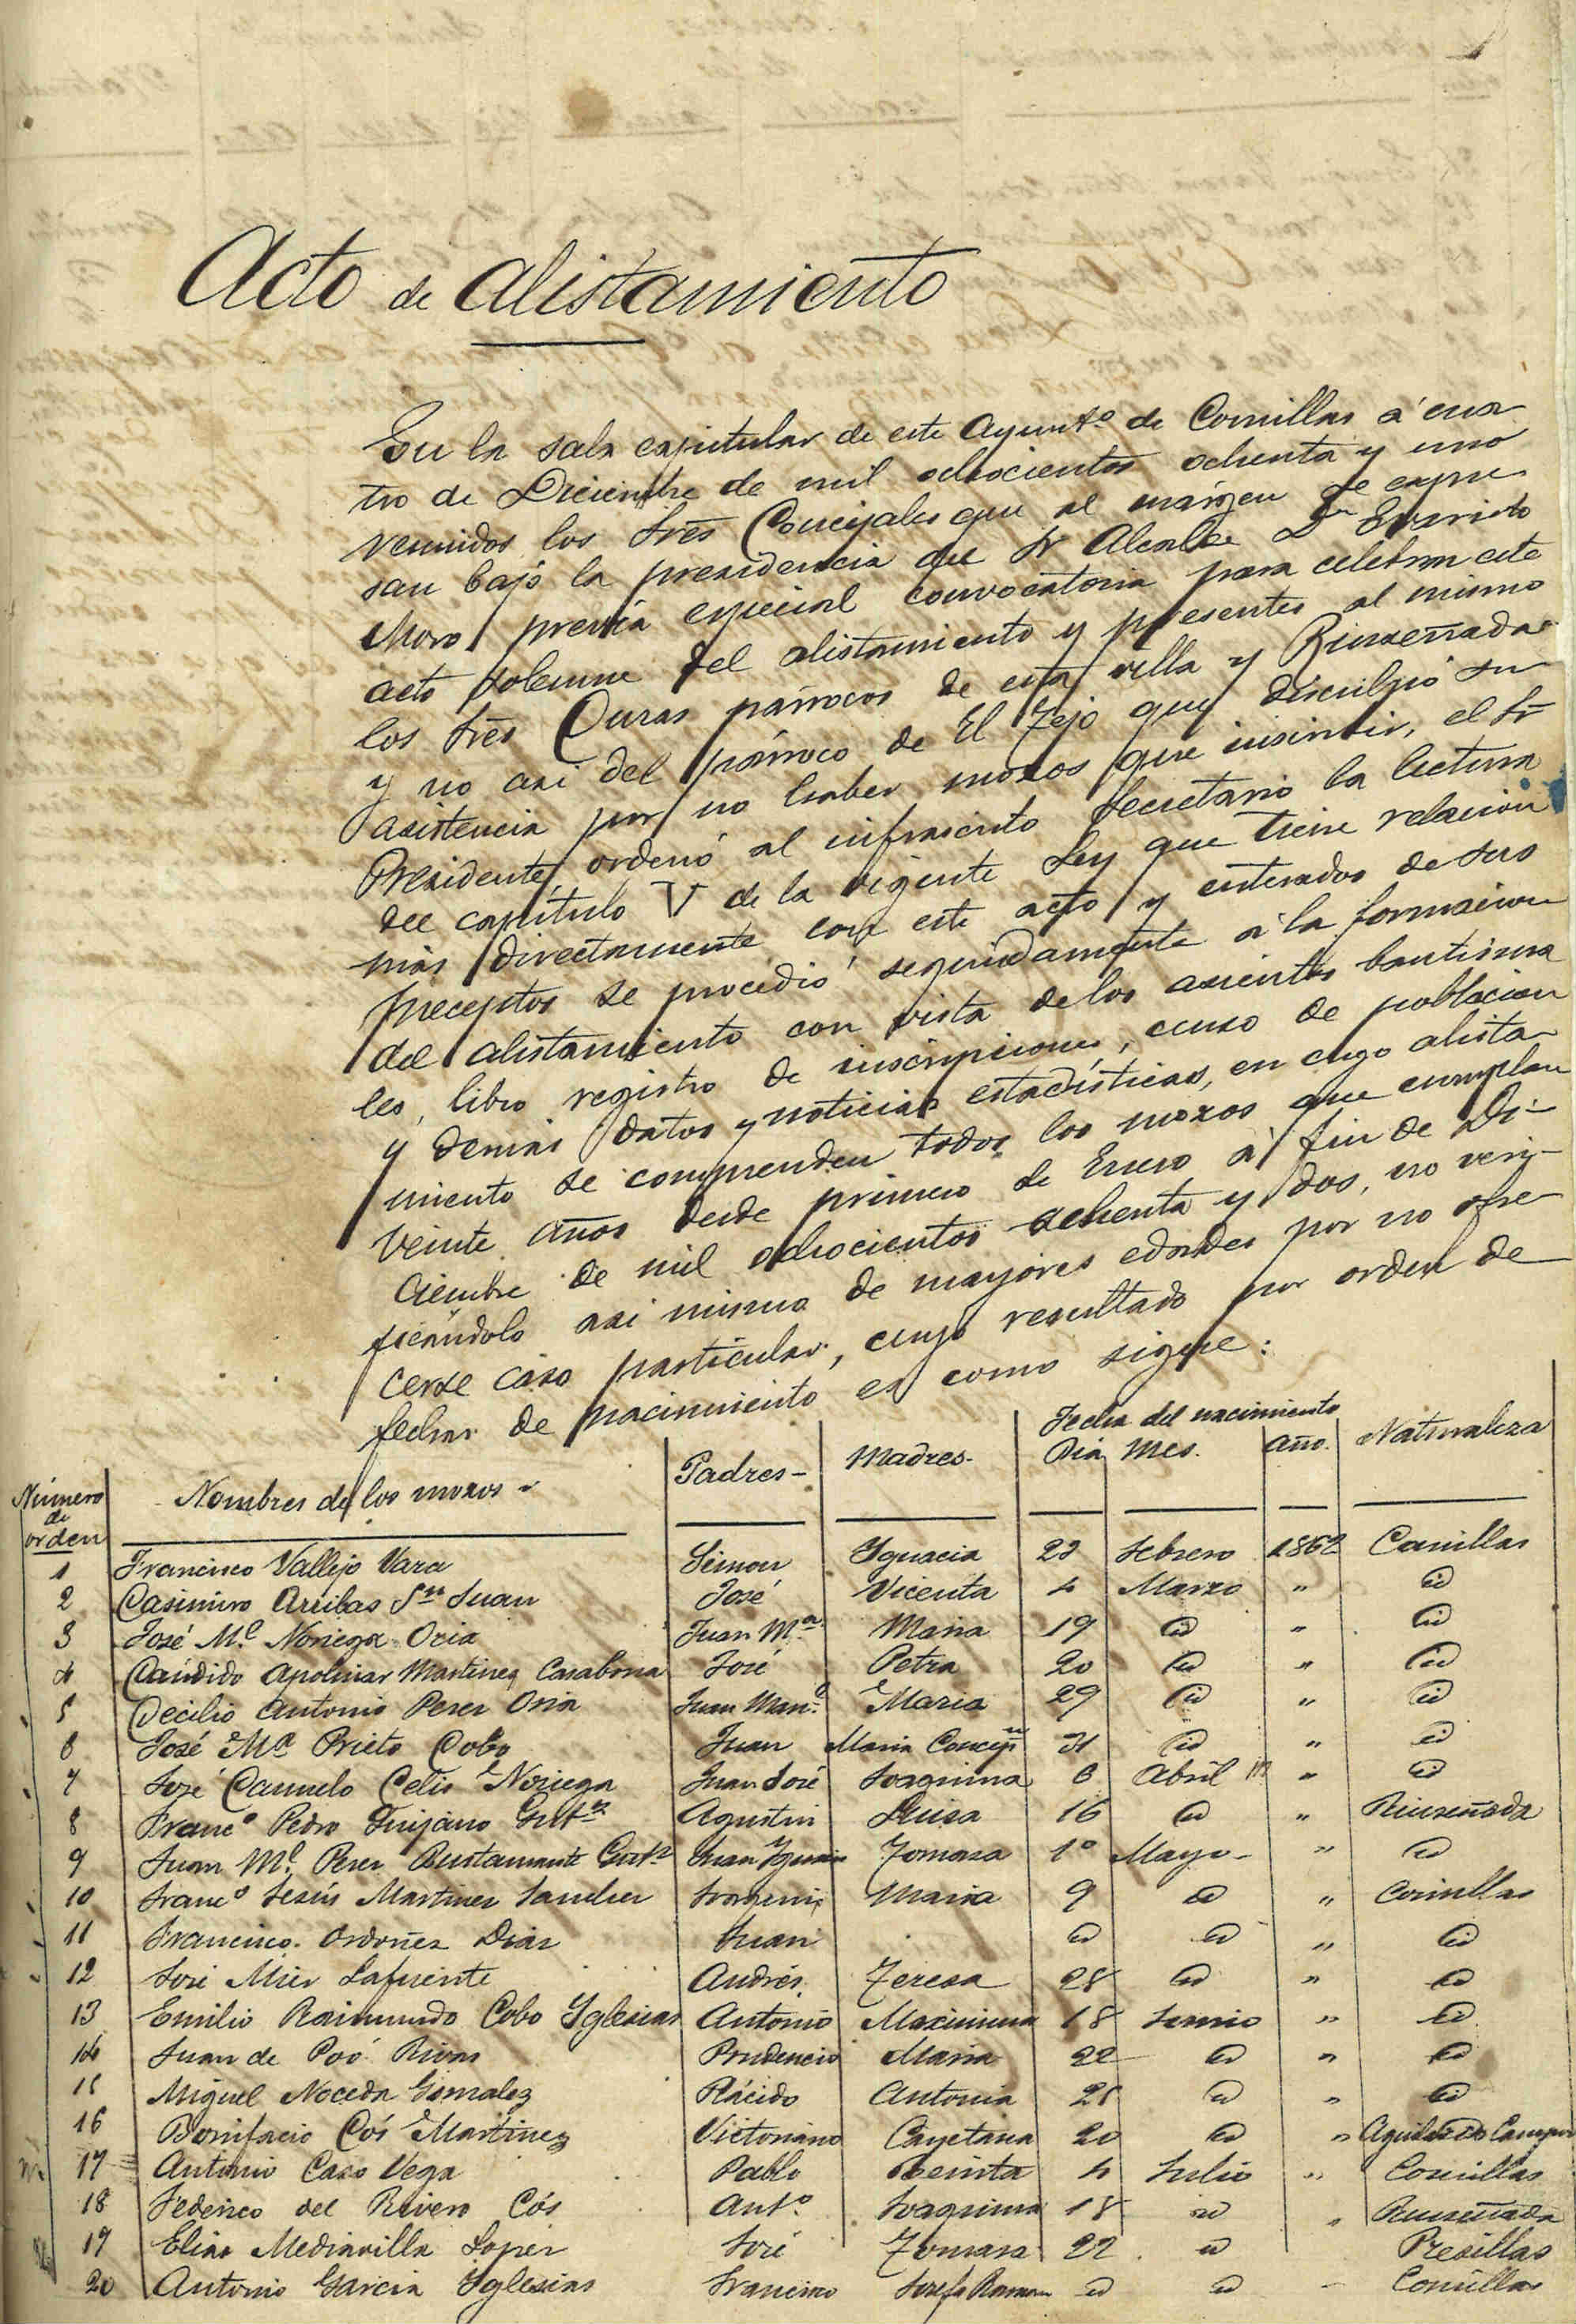 Acto de alistamiento
En la sala capitular de este Ayuntº de Comillas á cua
tro de Diciembre de mil ochocientos ochenta y uno
reunidos los Sres Concejales que al márgen se expre
san bajo la presidencia del Sr Alcalde Dn Evaristo
Moro previa especial convocatoria para celebrar este
acto solemne del alistamiento y presentes al mismo
los Sres Curas párrocos de esta villa y Ruiseñada
y no asi del párroco de El Tejo que disculpó su
asistencia por no haber mozos que inscribir, el Sr
Presidente ordenó al infrascrito Secretario la lectura
del capítulo V de la vigente Ley que tiene relacion
más directamente con este acto y enterados de sus
preceptos se procedió seguidamente á la formacion
del alistamiento con vista de los asientos bautisma
les, libro registro de inscripciones, censo de poblacion
y demás datos y noticias estadísticas, en cuyo alista-
miento se comprenden todos los mozos que cumplan
veinte años desde primero de Enero á fin de Di-
ciembre de mil ochocientos ochenta y dos, no veri-
ficándolo asi mismo de mayores edades por no ofre
cerse caso particular, cuyo resultado por orden de
fechas de nacimiento es como sigue:
Número de orden Nombres de los mozos Padres Madres Fecha del nacimiento Dia Mes. Año. Naturaleza
1 Francisco Vallejo Vara Simon Ygnacia 22 Febrero 1862 Comillas
2 Casimiro Arribas Sn Juan José Vicenta 4 Marzo " id
3 José Mª Noriega Oria Juan Mª Maria 19 id " id
4 Cándido Apolinar Martinez Casabona José Petra 20 id " id
5 Cecilio Antonio Perez Oria Juan Manl Maria 29 id " id
6 José Mª Prieto Cobo Juan Maria Concepn 31 id " id
7 José Carmelo Celis Noriega Juan José Joaquina 6 Abril " id
8 Francº Pedro Quijano Gutz Agustin Luisa 16 id " Ruiseñada
9 Juan Ml Perez Bustamante Gutz Juan Ygnacio Tomasa 1º Mayo " id
10 Francº Jesús Martinez Sanchez Joaquin Maria 9 id " Comillas
11 Francisco Ordoñez Diaz Juan id id " id
12 José Mier Lafuente Andrés Teresa 28 id " id
13 Emilio Raimundo Cobo Yglesias Antonio Maximina 18 Junio " id
14 Juan de Poó Rivas Prudencio Maria 22 id " id
15 Miguel Noceda Gonzalez Plácido Antonia 28 id " id
16 Bonifacio Cós Martinez Victoriano Cayetana 20 id " Aguilar de Campoo
17 Antonio Caso Vega Pablo Benita 4 Julio " Comillas
18 Federico del Rivero Cós Antº Joaquina 18 id " Ruiseñada
19 Elias Mediavilla Lopez José Tomasa 22 id Presillas
20 Antonio Garcia Yglesias Francisco Josefa Ramona id id Comillas